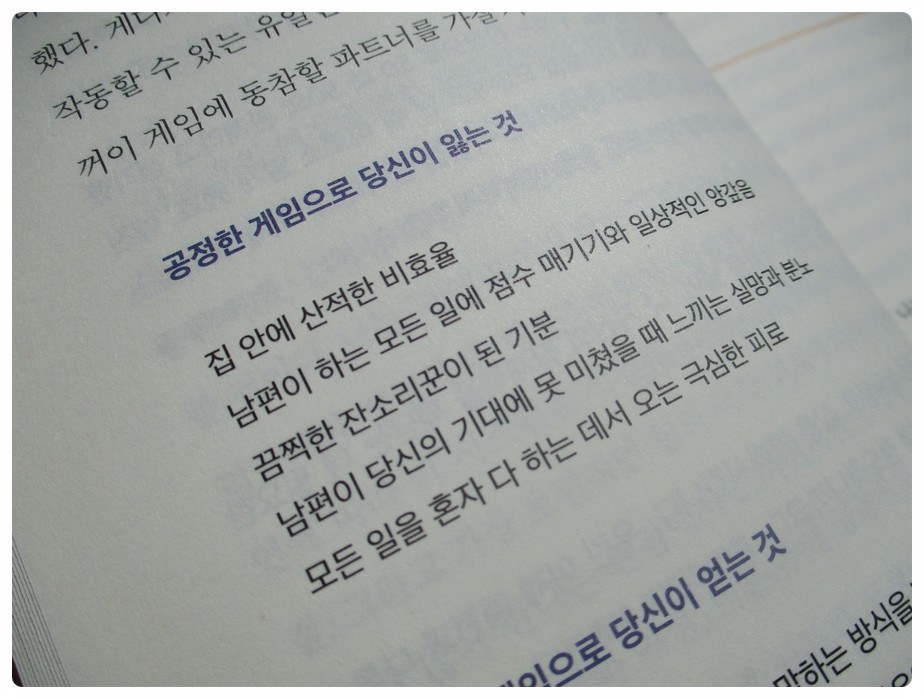 했다.
작동할 수 있는 유일
꺼이 게임에 동참할 파트너를 가질
공정한 게임으로 당신이 잃는 것
집 안에 산적한 비효율
남편이 하는 모든 일에 점수 매기기와 일상적인 앙갚음
끔찍한 잔소리꾼이 된 기분
남편이 당신의 기대에 못 미쳤을 때 느끼는 실망과 분노
모든 일을 혼자 다 하는 데서 오는 극심한 피로
게임으로 당신이 얻는 것
말하는 방식을